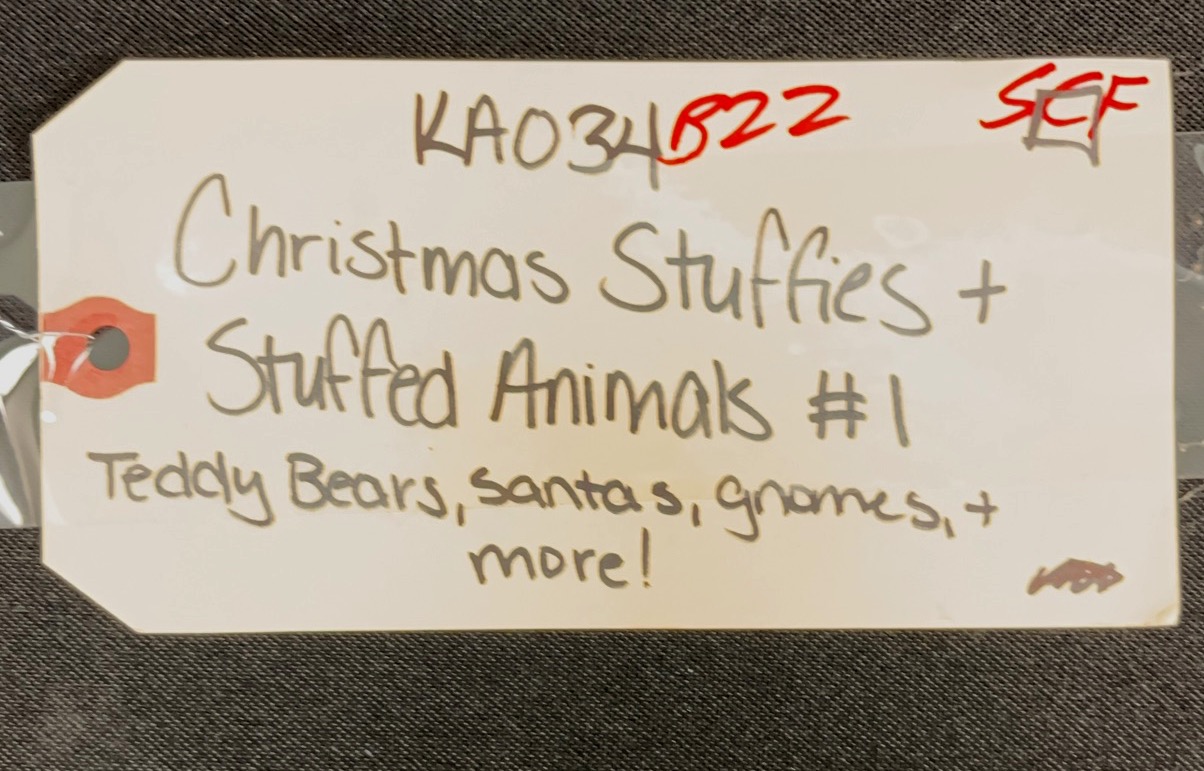 KA034 B22 SCF
Christmas Stuffies +
Stuffed Animals #1
Teddy Bears, santas, gnomes, +
more!